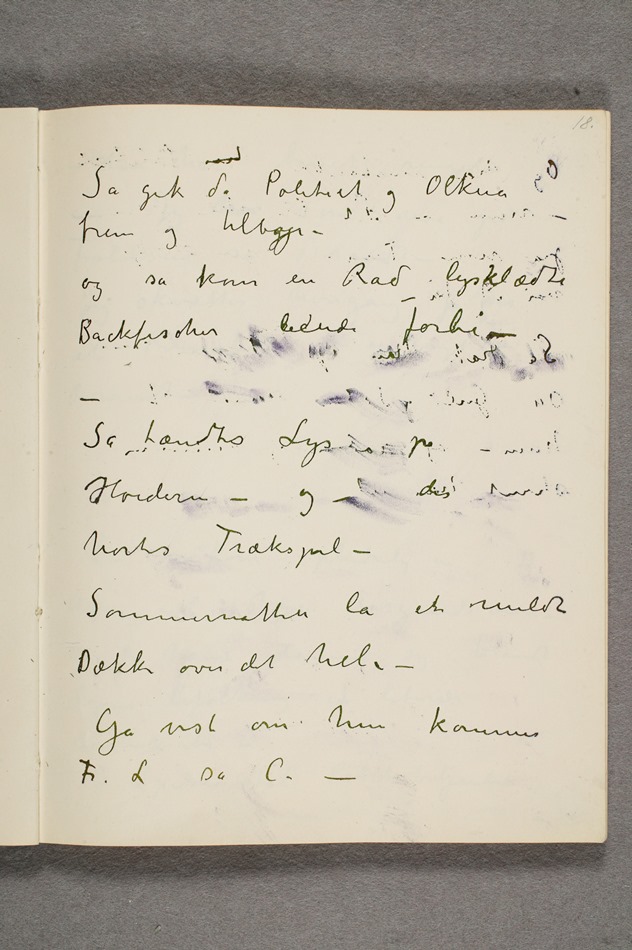 18.
Sa gik da Politiet og Olkua
frem og tilbage –
og sa kom en Rad lysklædte
Backfischer leende forbi –
–
Sa tændtes Lys pa
– og – det
hørtes Trækspil –
Sommernatten la et mildt
Dække over det hele –
Ga vist om hun kommer
Fr. L sa C. –